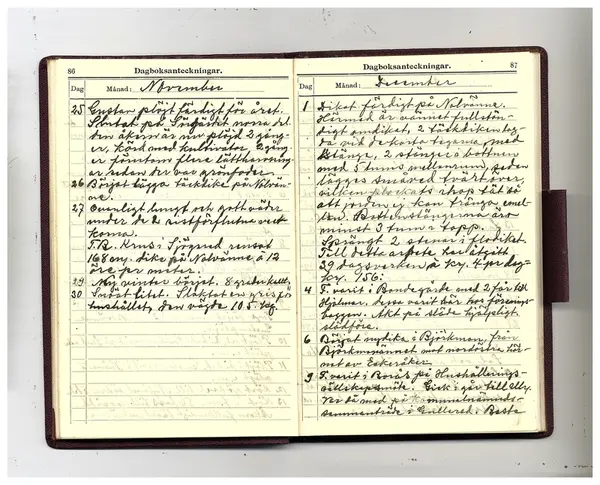 86
Dagboksanteckningar.
Dag
Månad: November
25 Gustav plöjt färdigt för året.
Slutat på Sörgärdet, norra del
den åkern är nu plöjd 2 gång-
er, körd med kultivator, 2 gång
er förutom flera lättharvning
ar sedan der var grönfoder.
26 Börjat lägga täckdike på Nolvän-
ne.
27 Ovanligt lungt och gott väder
under de 2 sistförflutna vec
korna.
F.R. Krus i Sjögred rensat
168 amj. dike på Nolvänne à 12
öre per meter.
29 Ny vinter börjat. 8 grader kallt.
30 Snöat litet. Slaktat en gris för
hushållet, den vägde 105 kg.
87
Dagboksanteckningar.
Dag
Månad: December
1 Dikat färdigt på Nolvänne.
Härmed är vännet fullstän-
digt omdikat, 2 täckdiken lag-
da vid de korta tegarna, med
stänger, 2 stänger i bottnen
med 5 tums mellanrum, sedan
lägges småved tvärt över,
vilken plockats ihop tät så
att jorden ej kan tränga emel-
len. Bottenstängerna äro
minst 3 tum i topp.
Sprängt 2 stenar i flodiket.
Till detta arbete har åtgått
39 dagsverken à kr. 4 pr dag-
kr. 156:
4 F. varit i Bondegärde med 2 får till
Hjelmar, dessa varit här hos förenings-
baggen. Åkt på släde hjälpligt
slädföre.
6 Börjat nydika i Björkman, från
Björkmannet mot nordöstra hör-
net av Eskeråker.
9 F. varit i Borås på Hushållnings-
sällskapsmöte. Gick i går till Elly
var då med på kommunalnämnds-
sammanträde i Gullered. Beste